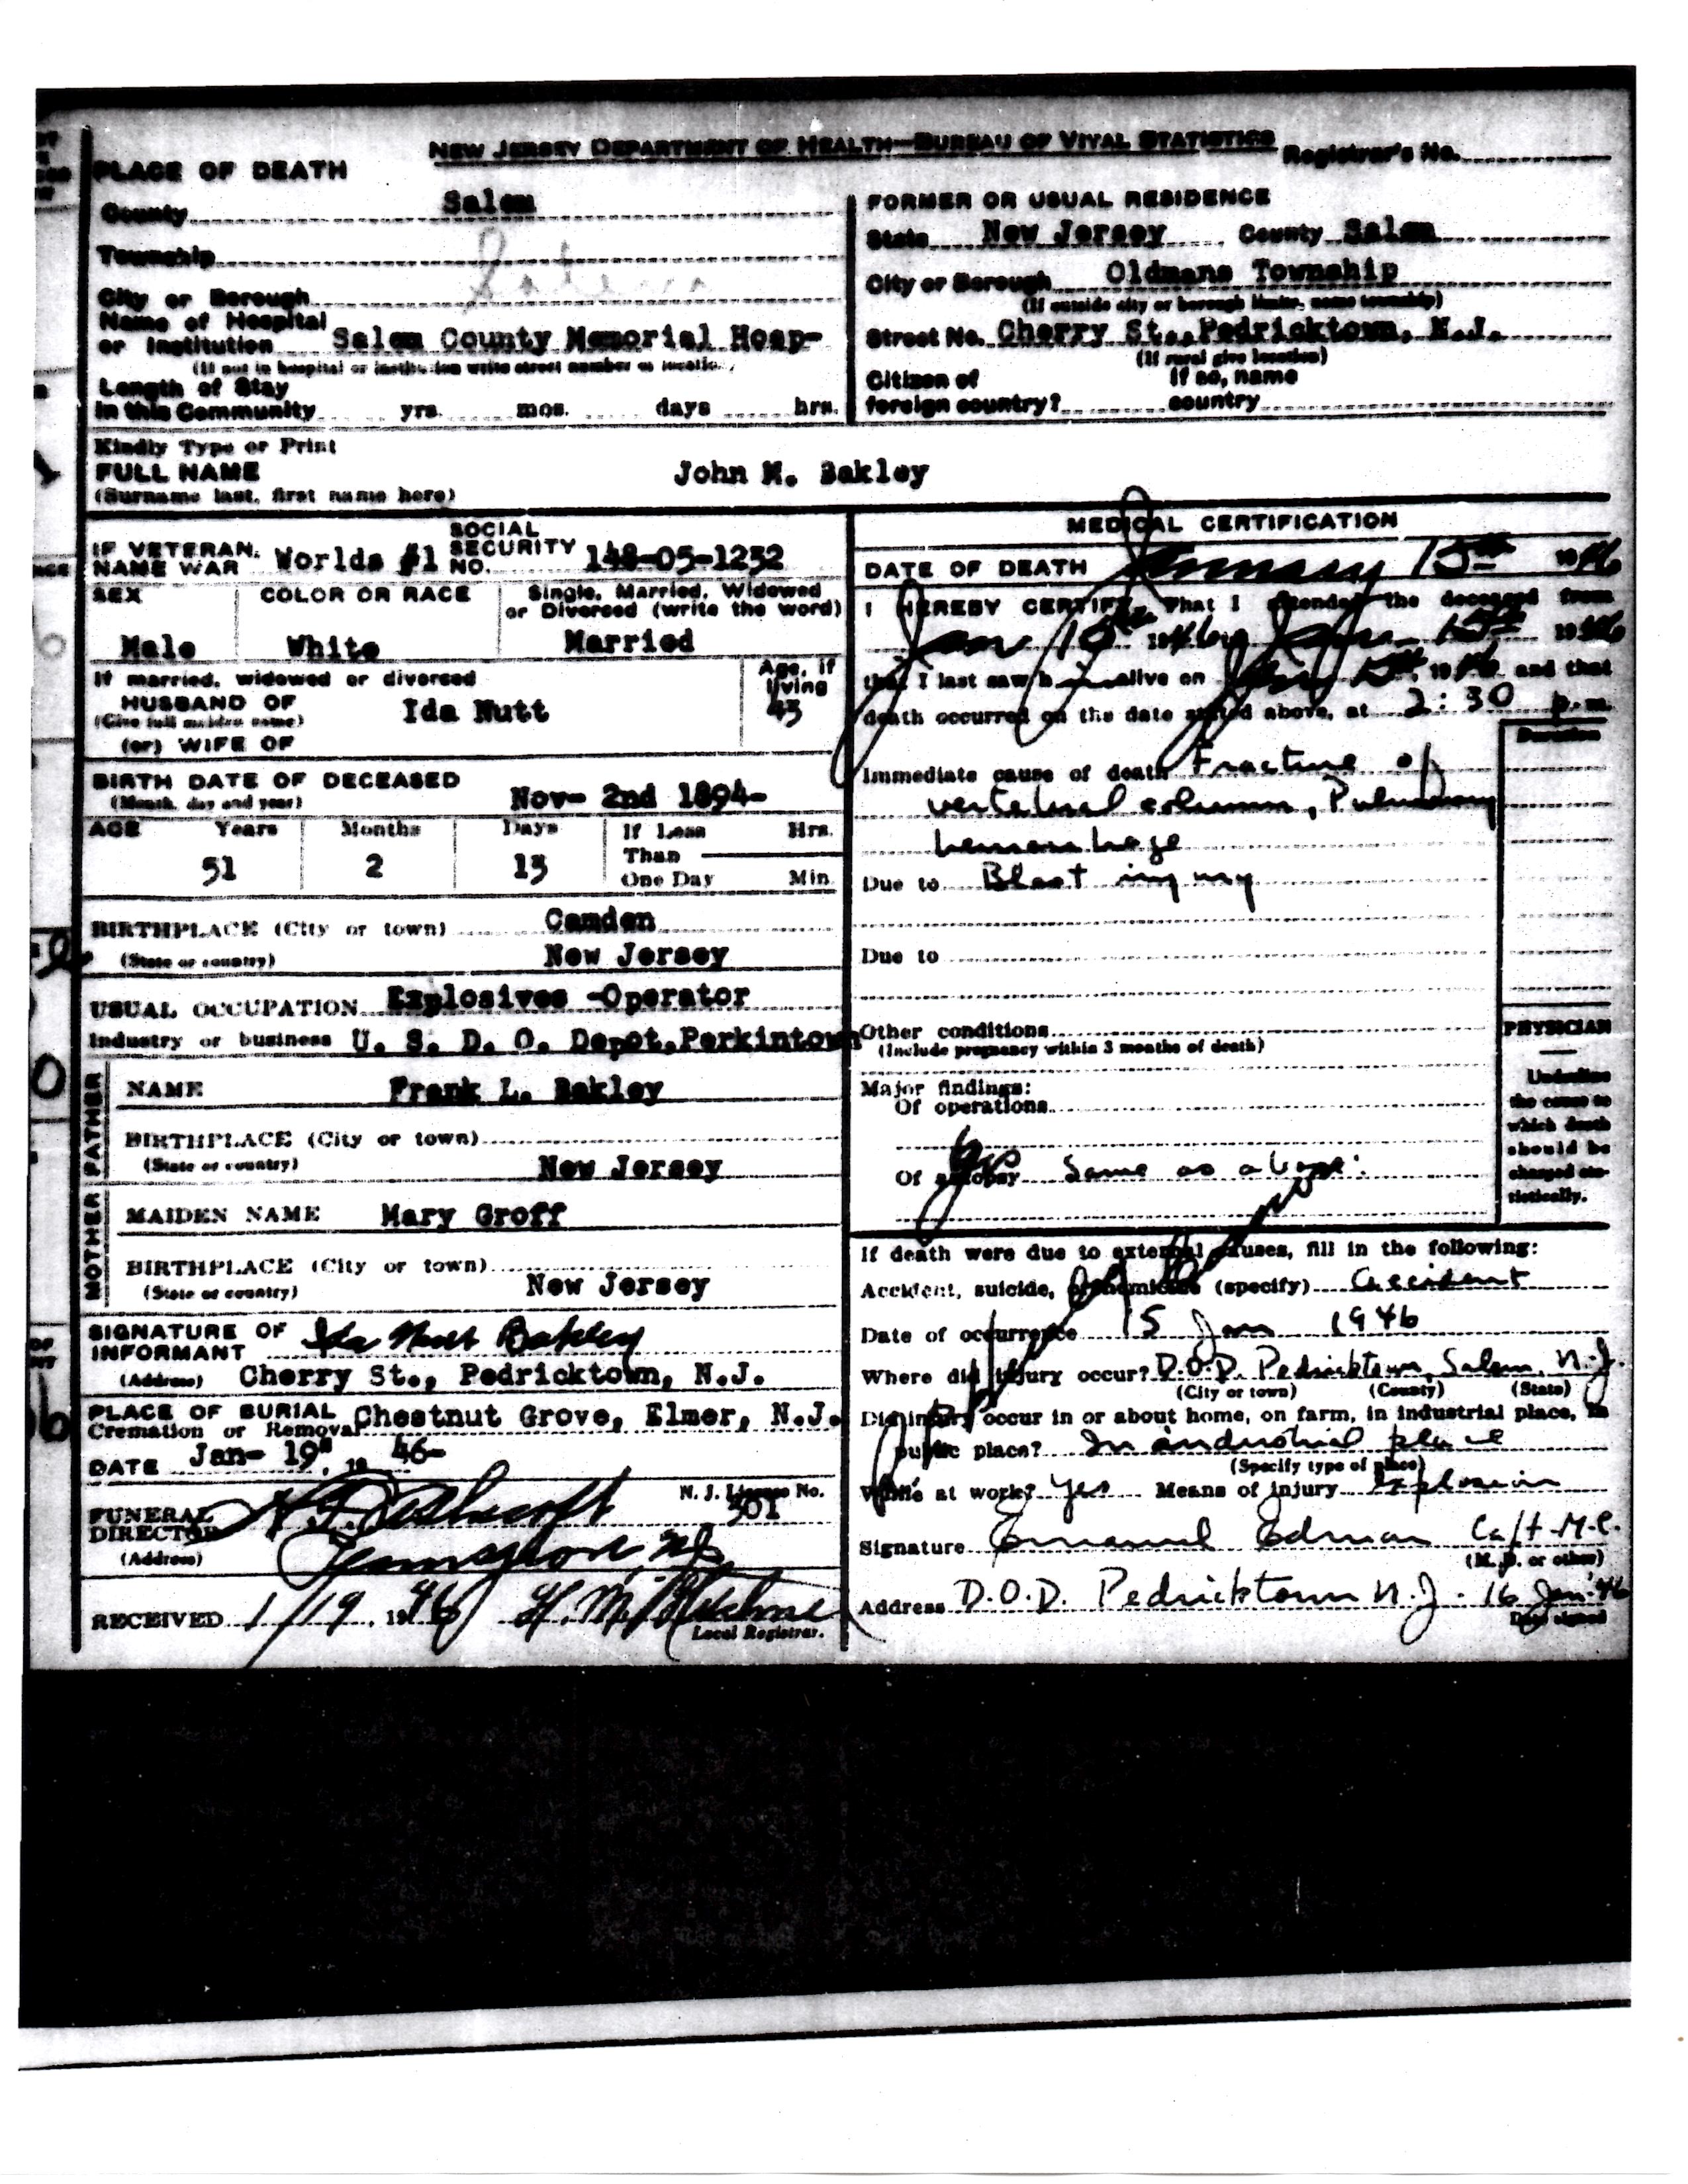 NEW JERSEY DEPARTMENT OF HEALTH—BUREAU OF VITAL STATISTICS
Registrar's No.
PLACE OF DEATH
County Salem
Township
City or Borough Salem
Name of Hospital
or Institution Salem County Memorial Hosp-
(If not in hospital or institution write street number or location)
Length of Stay
In this Community yrs. mos. days hrs.
FORMER OR USUAL RESIDENCE
State New Jersey County Salem
City or Borough Oldmans Township
(If outside city or borough limits, name township)
Street No. Cherry St., Pedricktown, N.J.
(If rural give location)
Citizen of If so, name
foreign country? country
Kindly Type or Print
FULL NAME John M. Bakley
(Surname last, first name here)
IF VETERAN, NAME WAR Worlds #1 SOCIAL SECURITY NO. 148-05-1232
SEX COLOR OR RACE Single, Married, Widowed
or Divorced (write the word)
Male White Married
If married, widowed or divorced Age, if living
HUSBAND OF Ida Nutt 43
(Give full maiden name)
(or) WIFE OF
BIRTH DATE OF DECEASED
(Month, day and year) Nov- 2nd 1894-
AGE Years Months Days If Less Hrs.
51 2 13 Than
One Day Min.
BIRTHPLACE (City or town) Camden
(State or country) New Jersey
USUAL OCCUPATION Explosives -Operator
Industry or business U. S. D. O. Depot,Perkintown
FATHER
NAME Frank L. Bakley
BIRTHPLACE (City or town)
(State or country) New Jersey
MOTHER
MAIDEN NAME Mary Groff
BIRTHPLACE (City or town)
(State or country) New Jersey
SIGNATURE OF
INFORMANT Ida Nutt Bakley
(Address) Cherry St., Pedricktown, N.J.
PLACE OF BURIAL
Cremation or Removal Chestnut Grove, Elmer, N.J.
DATE Jan- 19", 19 46-
FUNERAL N. J. License No.
DIRECTOR 301
(Address)
RECEIVED 1/19 1946 H. M.
Local Registrar.
MEDICAL CERTIFICATION
DATE OF DEATH January 15th 1946
I HEREBY CERTIFY, That I attended the deceased from
Jan 15th 1946 to Jan. 15th 1946
that I last saw him alive on Jan 15th, 1946 and that
death occurred on the date stated above, at 2:30 p.m.
Duration
Immediate cause of death Fracture of
vertebral column, Pulmonary
hemorrhage
Due to Blast injury
Due to
Other conditions
(Include pregnancy within 3 months of death)
Major findings:
Of operations
Of autopsy Same as above.
PHYSICIAN
Underline
the cause to
which death
should be
charged sta-
tistically.
If death were due to external causes, fill in the following:
Accident, suicide, or homicide (specify) Accident
Date of occurrence 15 Jan 1946
Where did injury occur? D.O.D. Pedricktown, Salem, N.J.
(City or town) (County) (State)
Did injury occur in or about home, on farm, in industrial place, in
public place? In industrial place
(Specify type of place)
While at work? Yes Means of injury Explosion
Signature Emanuel Edman Capt. M.C.
(M. D. or other)
Address D.O.D. Pedricktown N.J. 16 Jan '46
Date signed